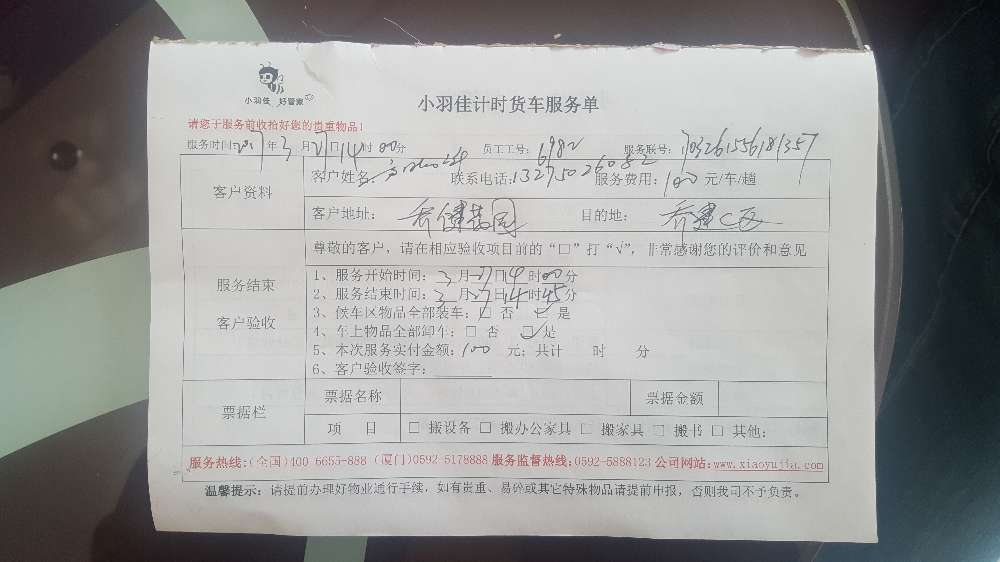 小羽佳 好管家
小羽佳计时货车服务单
请您于服务前收拾好您的贵重物品!
服务时间: 年3月 日14时00分 员工工号: 6982 服务联号:
客户资料
客户姓名: 联系电话: 13275026082 服务费用: 100元/车/趟
客户地址: 乔健花园 目的地: 乔健C区
尊敬的客户,请在相应验收项目前的“□”打“√”,非常感谢您的评价和意见
服务结束
客户验收
1、服务开始时间: 3月27日14时00分
2、服务结束时间: 3月27日14时45分
3、候车区物品全部装车: □ 否 ☑ 是
4、车上物品全部卸车: □ 否 ☑ 是
5、本次服务实付金额: 100 元; 共计 时 分
6、客户验收签字:
票据栏
票据名称 票据金额
项 目 □ 搬设备 □ 搬办公家具 □ 搬家具 □ 搬书 □ 其他:
服务热线:(全国)400 6655-888 (厦门)0592 5178888 服务监督热线:0592-5888123 公司网站:www.xiaoyujia.com
温馨提示: 请提前办理好物业通行手续,如有贵重、易碎或其它特殊物品请提前申报,否则我司不予负责。